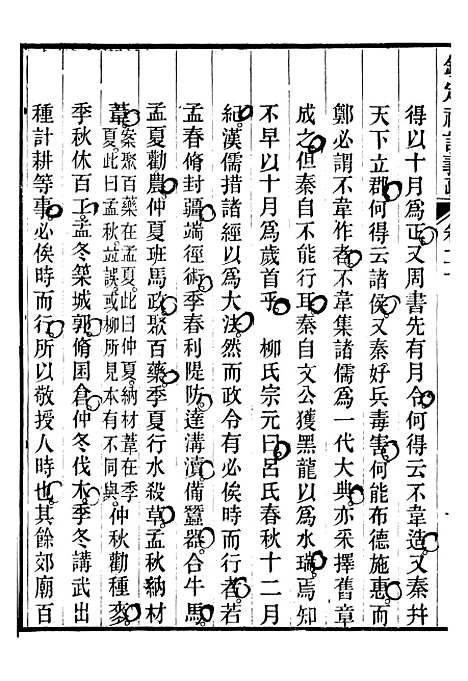 欽定禮記義疏 卷二十
得以十月爲正又周書先有月令何得云不韋造又秦幷
天下立郡何得云諸侯又秦好兵毒害何能布德施惠而
鄭必謂不韋作者不韋集諸儒爲一代大典亦采擇舊章
成之但秦自不能行耳秦自文公獲黑龍以爲水瑞焉知
不早以十月爲歲首乎 柳氏宗元曰呂氏春秋十二月
紀漢儒措諸經以爲大法然而政令有必俟時而行者若
孟春脩封疆端徑術季春利隄防達溝瀆備蠶器合牛馬
孟夏勸農仲夏班馬政聚百藥季夏行水殺草孟秋納材
葦案聚百藥在孟夏此曰仲夏納材葦在季
夏此曰孟秋並誤或柳所見本有不同與仲秋勸種麥
季秋休百工孟冬築城郭脩囷倉仲冬伐木季冬講武出
種計耕等事必俟時而行所以敬授人時也其餘郊廟百